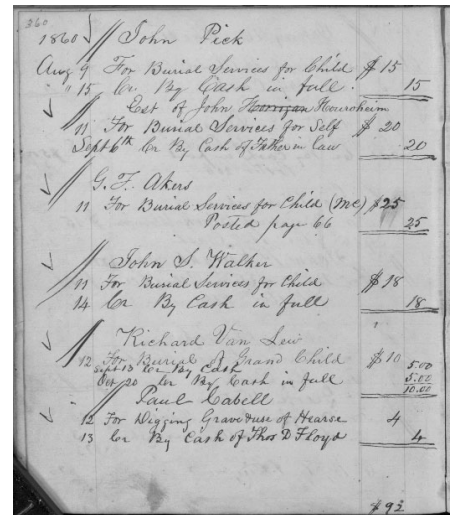 360
1860 John Pick
Aug 9 For Burial Services for Child $15
" 15 Cr. By Cash in full. 15
Est of John Houroheim
11 For Burial Services for Self $20
Sept 6th Cr By Cash of Father in law 20
G. F. Akers
11 For Burial Services for Child (MC) $25
Posted page 66 25
John S. Walker
11 For Burial Services for Child $18
14 Cr By Cash in full 18
Richard Van Lew
12 For Burial of Grand Child $10
Sept 13 Cr By Cash 5.00
Oct 20 Cr By Cash in full 5.00
10.00
Paul Cabell
12 For Digging Grave & use of Hearse 4
13 Cr By Cash of Thos D Floyd 4
$92